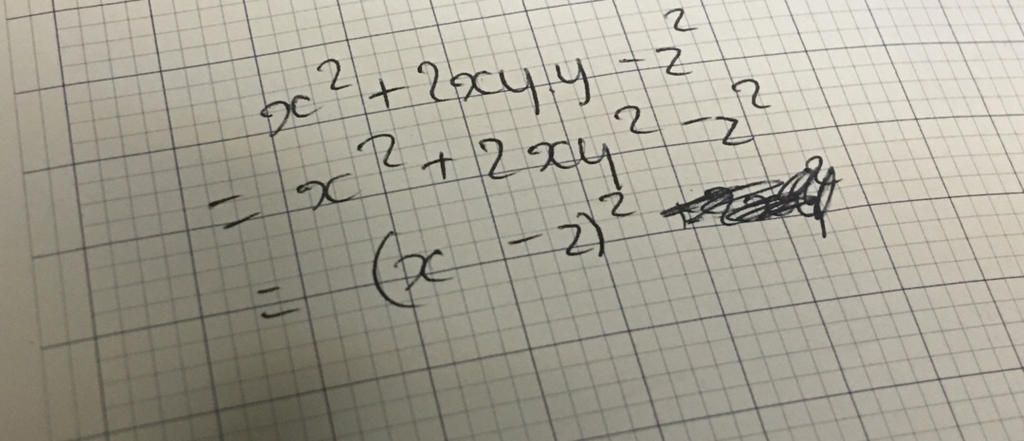 x² + 2xy.y - z²
= x² + 2xy² - z²
= (x - z)²